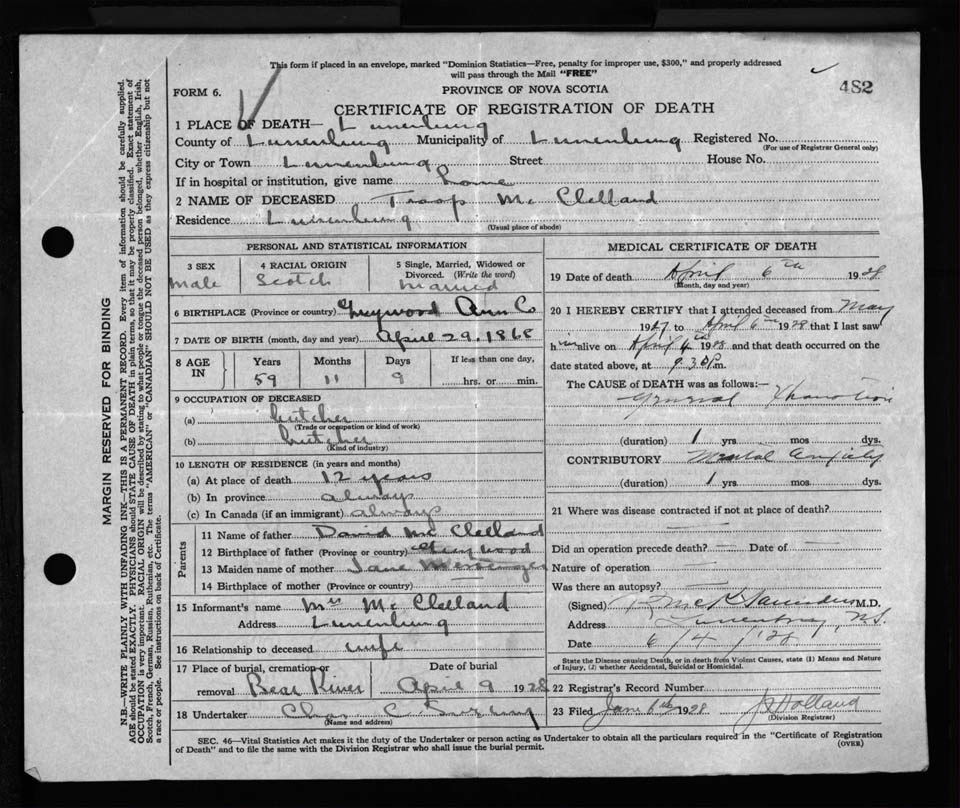 This form if placed in an envelope, marked "Dominion Statistics—Free, penalty for improper use, $300," and properly addressed
will pass through the Mail "FREE"
482
FORM 6.
PROVINCE OF NOVA SCOTIA
CERTIFICATE OF REGISTRATION OF DEATH
1 PLACE OF DEATH— Lunenburg
County of Lunenburg Municipality of Lunenburg Registered No.
(For use of Registrar General only)
City or Town Lunenburg Street House No.
If in hospital or institution, give name home
2 NAME OF DECEASED Troop Mc Clelland
Residence Lunenburg
(Usual place of abode)
PERSONAL AND STATISTICAL INFORMATION
3 SEX 4 RACIAL ORIGIN 5 Single, Married, Widowed or
Divorced. (Write the word)
Male Scotch Married
6 BIRTHPLACE (Province or country) Ann Co
7 DATE OF BIRTH (month, day and year) April 29, 1868
8 AGE IN Years Months Days If less than one day,
59 11 9 hrs. or min.
9 OCCUPATION OF DECEASED
(a) butcher
(Trade or occupation or kind of work)
(b) butcher
(Kind of industry)
10 LENGTH OF RESIDENCE (in years and months)
(a) At place of death 12 years
(b) In province always
(c) In Canada (if an immigrant) always
Parents
11 Name of father David Mc Clelland
12 Birthplace of father (Province or country)
13 Maiden name of mother Jane Messenger
14 Birthplace of mother (Province or country)
15 Informant's name Mrs Mc Clelland
Address Lunenburg
16 Relationship to deceased wife
17 Place of burial, cremation or Date of burial
removal Bear River April 9 1928
18 Undertaker Chas C
(Name and address)
MEDICAL CERTIFICATE OF DEATH
19 Date of death April 6th 1928
(Month, day and year)
20 I HEREBY CERTIFY that I attended deceased from May
1927 to April 6th 1928 that I last saw
him alive on April 6th 1928 and that death occurred on the
date stated above, at 9.30 P.m.
The CAUSE of DEATH was as follows:
General
(duration) 1 yrs. mos. dys.
CONTRIBUTORY Mental anxiety
(duration) 1 yrs. mos. dys.
21 Where was disease contracted if not at place of death?
Did an operation precede death? Date of
Nature of operation
Was there an autopsy?
(Signed) Saunders M.D.
Address Lunenburg, N.S.
Date 6/4/'28
State the Disease causing Death, or in death from Violent Causes, state (1) Means and Nature
of Injury, (2) whether Accidental, Suicidal or Homicidal.
22 Registrar's Record Number
23 Filed 1928 Holland
(Division Registrar)
SEC. 46—Vital Statistics Act makes it the duty of the Undertaker or person acting as Undertaker to obtain all the particulars required in the "Certificate of Registration
of Death" and to file the same with the Division Registrar who shall issue the burial permit.
(OVER)
MARGIN RESERVED FOR BINDING
N.B.—WRITE PLAINLY WITH UNFADING INK—THIS IS A PERMANENT RECORD. Every item of information should be carefully supplied.
AGE should be stated EXACTLY. PHYSICIANS should STATE CAUSE OF DEATH in plain terms, so that it may be properly classified. Exact statement of
OCCUPATION is very important. RACIAL ORIGIN will be described by stating to what people or tongue the deceased person belonged, whether English, Irish,
Scotch, French, German, Russian, Ruthenian, etc. The terms "AMERICAN" or "CANADIAN" SHOULD NOT BE USED as they express citizenship but not
a race or people. See instructions on back of Certificate.